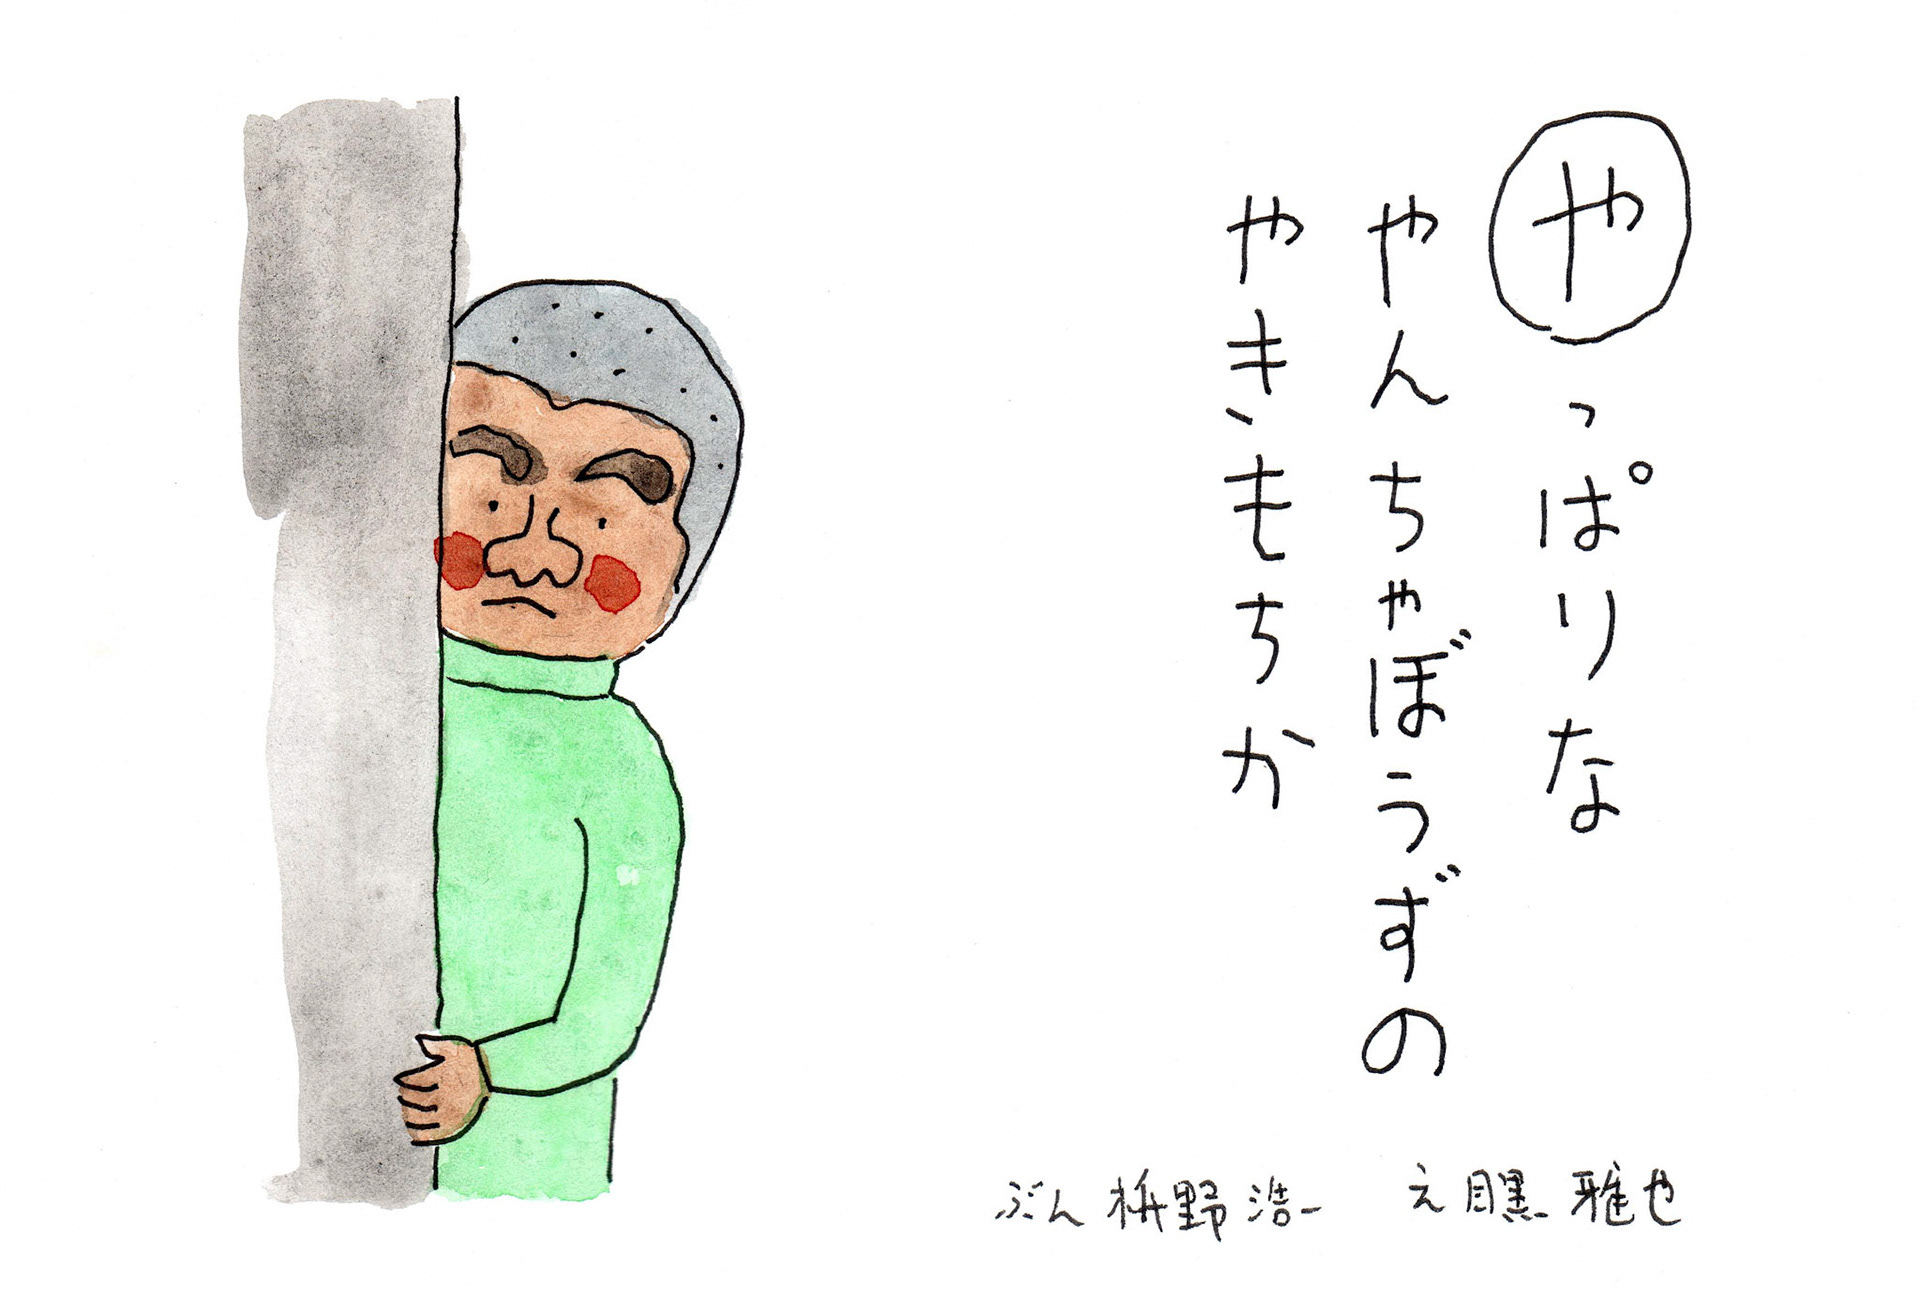 やっぱりな
やんちゃぼうずの
やきもちか
え 目黒雅也
ぶん 枡野浩一